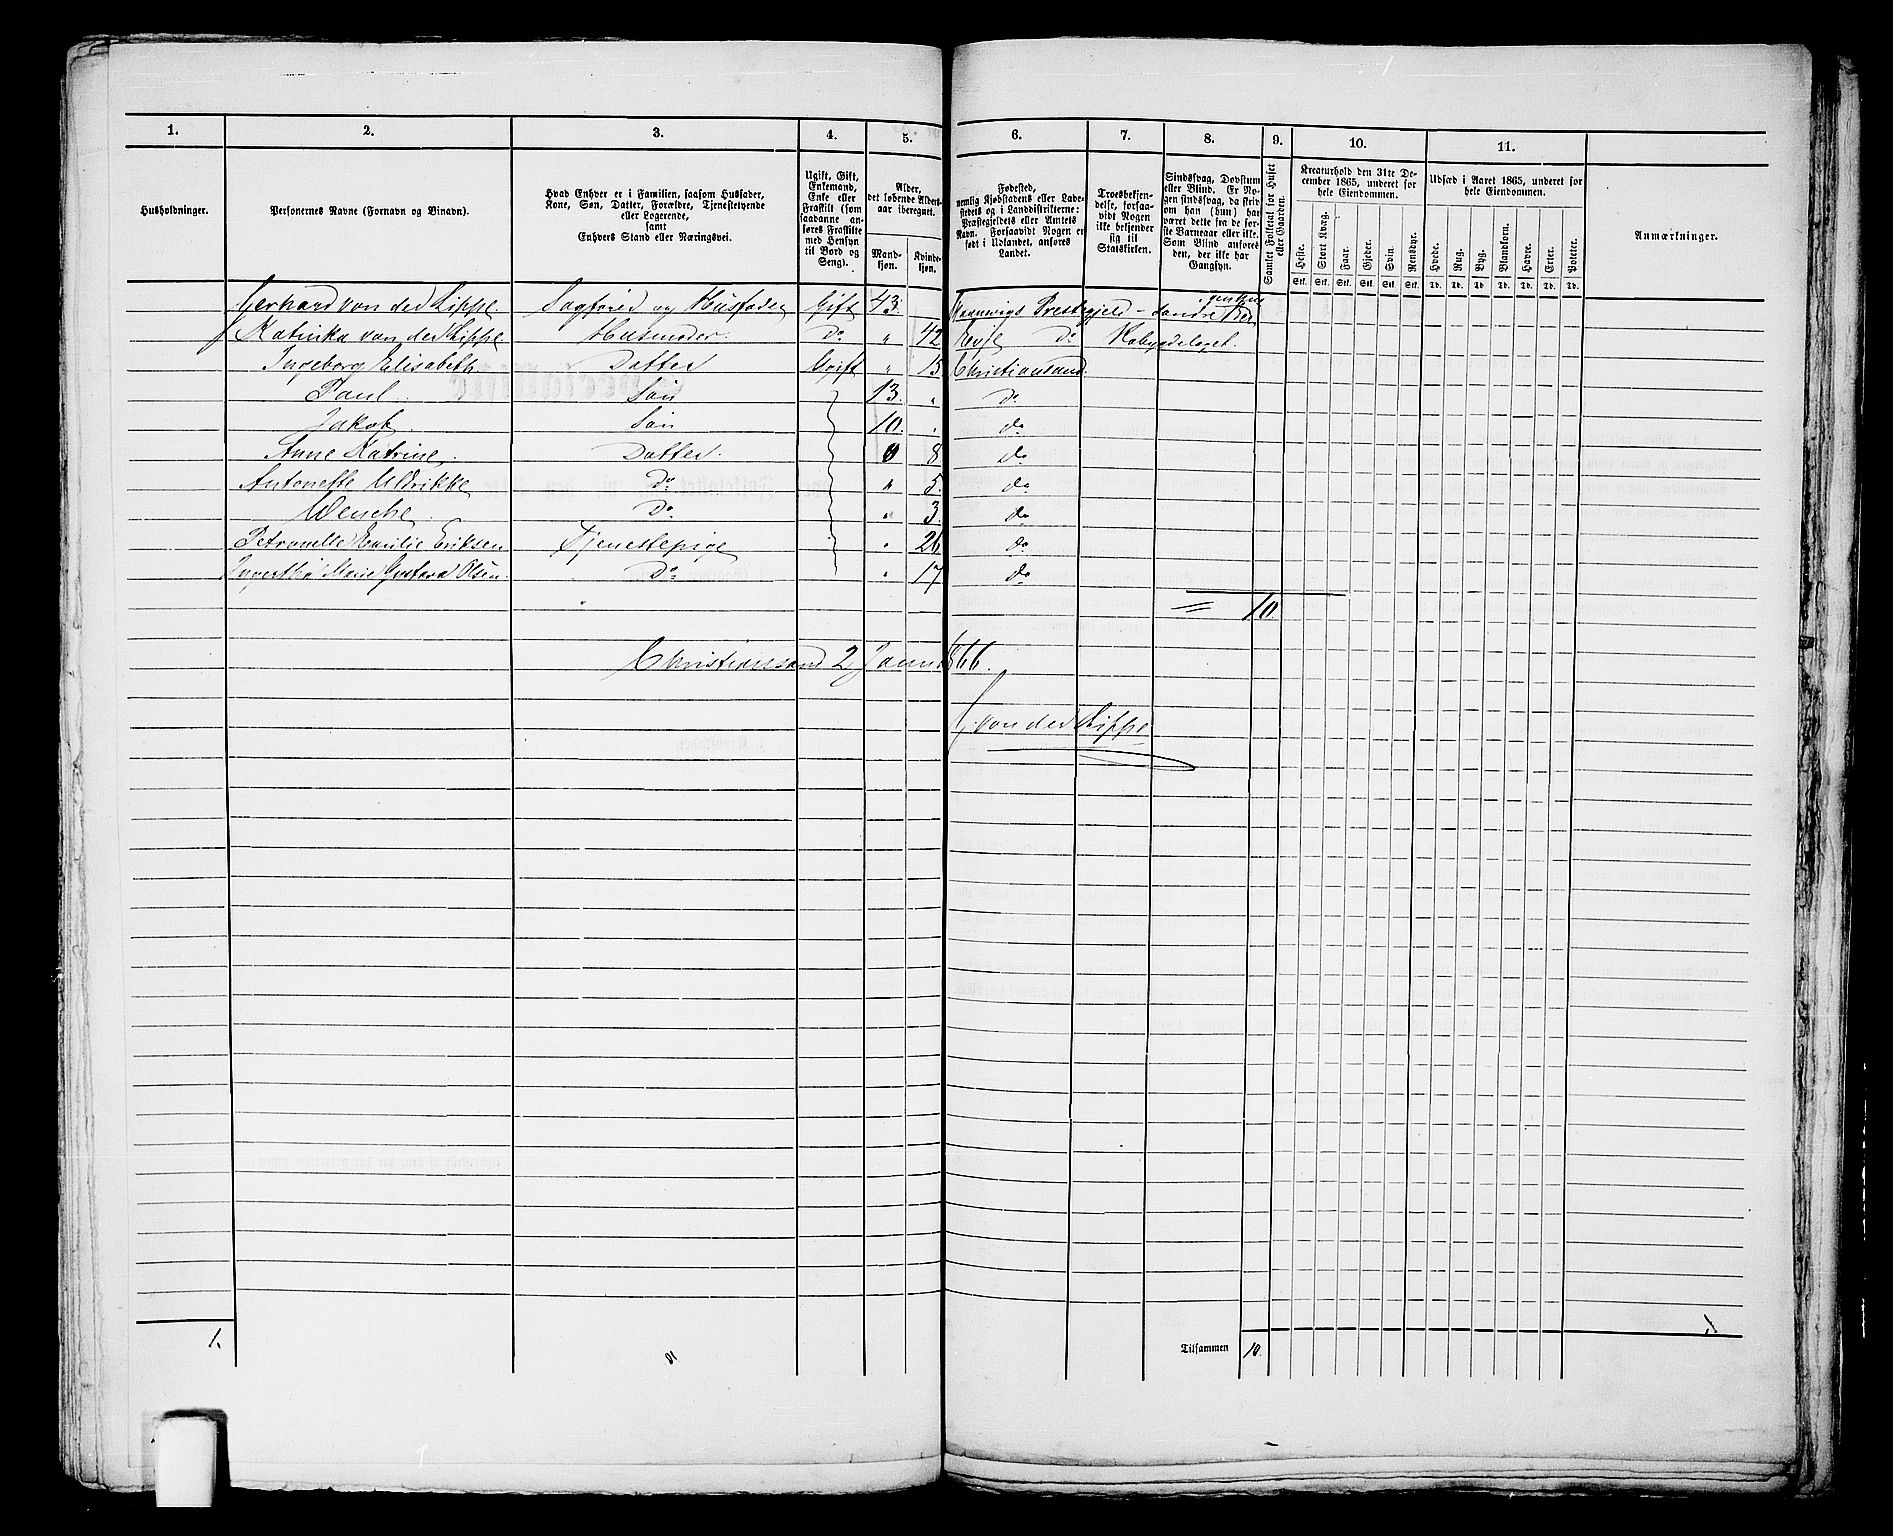 1. 2. 3. 4. 5. 6. 7. 8. 9. 10. 11.
Husholdninger.
Personernes Navne (Fornavn og Binavn).
Hvad Enhver er i Familien, saasom Husfader,
Kone, Søn, Datter, Forældre, Tjenestetyende
eller Logerende,
samt
Enhvers Stand eller Næringsvei.
Ugift, Gift,
Enkemand,
Enke eller
Fraskilt (som
saadanne an-
føres Fraskilte
med Hensyn
til Bord og
Seng).
Alder,
det løbende Alders-
aar iberegnet.
Mand-
kjøn.
Kvinde-
kjøn.
Fødested,
nemlig Kjøbstadens eller Lade-
stedets og i Landdistrikterne:
Præstegjeldets eller Amtets
Navn. Forsaavidt Nogen er
født i Udlandet, anføres
Landet.
Troesbekjen-
delse, forsaa-
vidt Nogen
ikke bekjender
sig til
Statskirken.
Sindssvag, Døvstum
eller Blind. Er No-
gen sindssvag, da skriv
om han (hun) har
været dette fra de før-
ste Barneaar eller ikke.
Som Blind anføres
den, der ikke har
Gangsyn.
Samlet Folketal for Huset
eller Gaarden.
Kreaturhold den 31te De-
cember 1865, underet for
hele Eiendommen.
Heste. Stort Kvæg. Faar. Gjeder. Svin. Rensdyr.
Stk. Stk. Stk. Stk. Stk. Stk.
Udsæd i Aaret 1865, underet for
hele Eiendommen.
Hvede. Rug. Byg. Blandkorn. Havre. Erter. Poteter.
Td. Td. Td. Td. Td. Td. Td.
Anmærkninger.
Gerhard von der Lippe. Sagfører og Husfader Gift 43. Præstegjeld
Katinka von der Lippe Husmoder. Do " 42 Evje do Robygdelaget.
Ingeborg Elisabeth Datter Ugift " 15. Christiansand.
Paul. Søn 13. " do
Jakob. Søn 10. " do
Anne Katrine. Datter. 8 do
Antonette Ulrikke Do " 5. do
Wenche. Do " 3. do
Petronelle Emilie Eriksen Tjenestepige " 26 do
Marie Gustava Olsen. Do " 17 do
= 10.
Christianssand 2 Januar 1866.
G. von der Lippe
1. Tilsammen 10. 1.